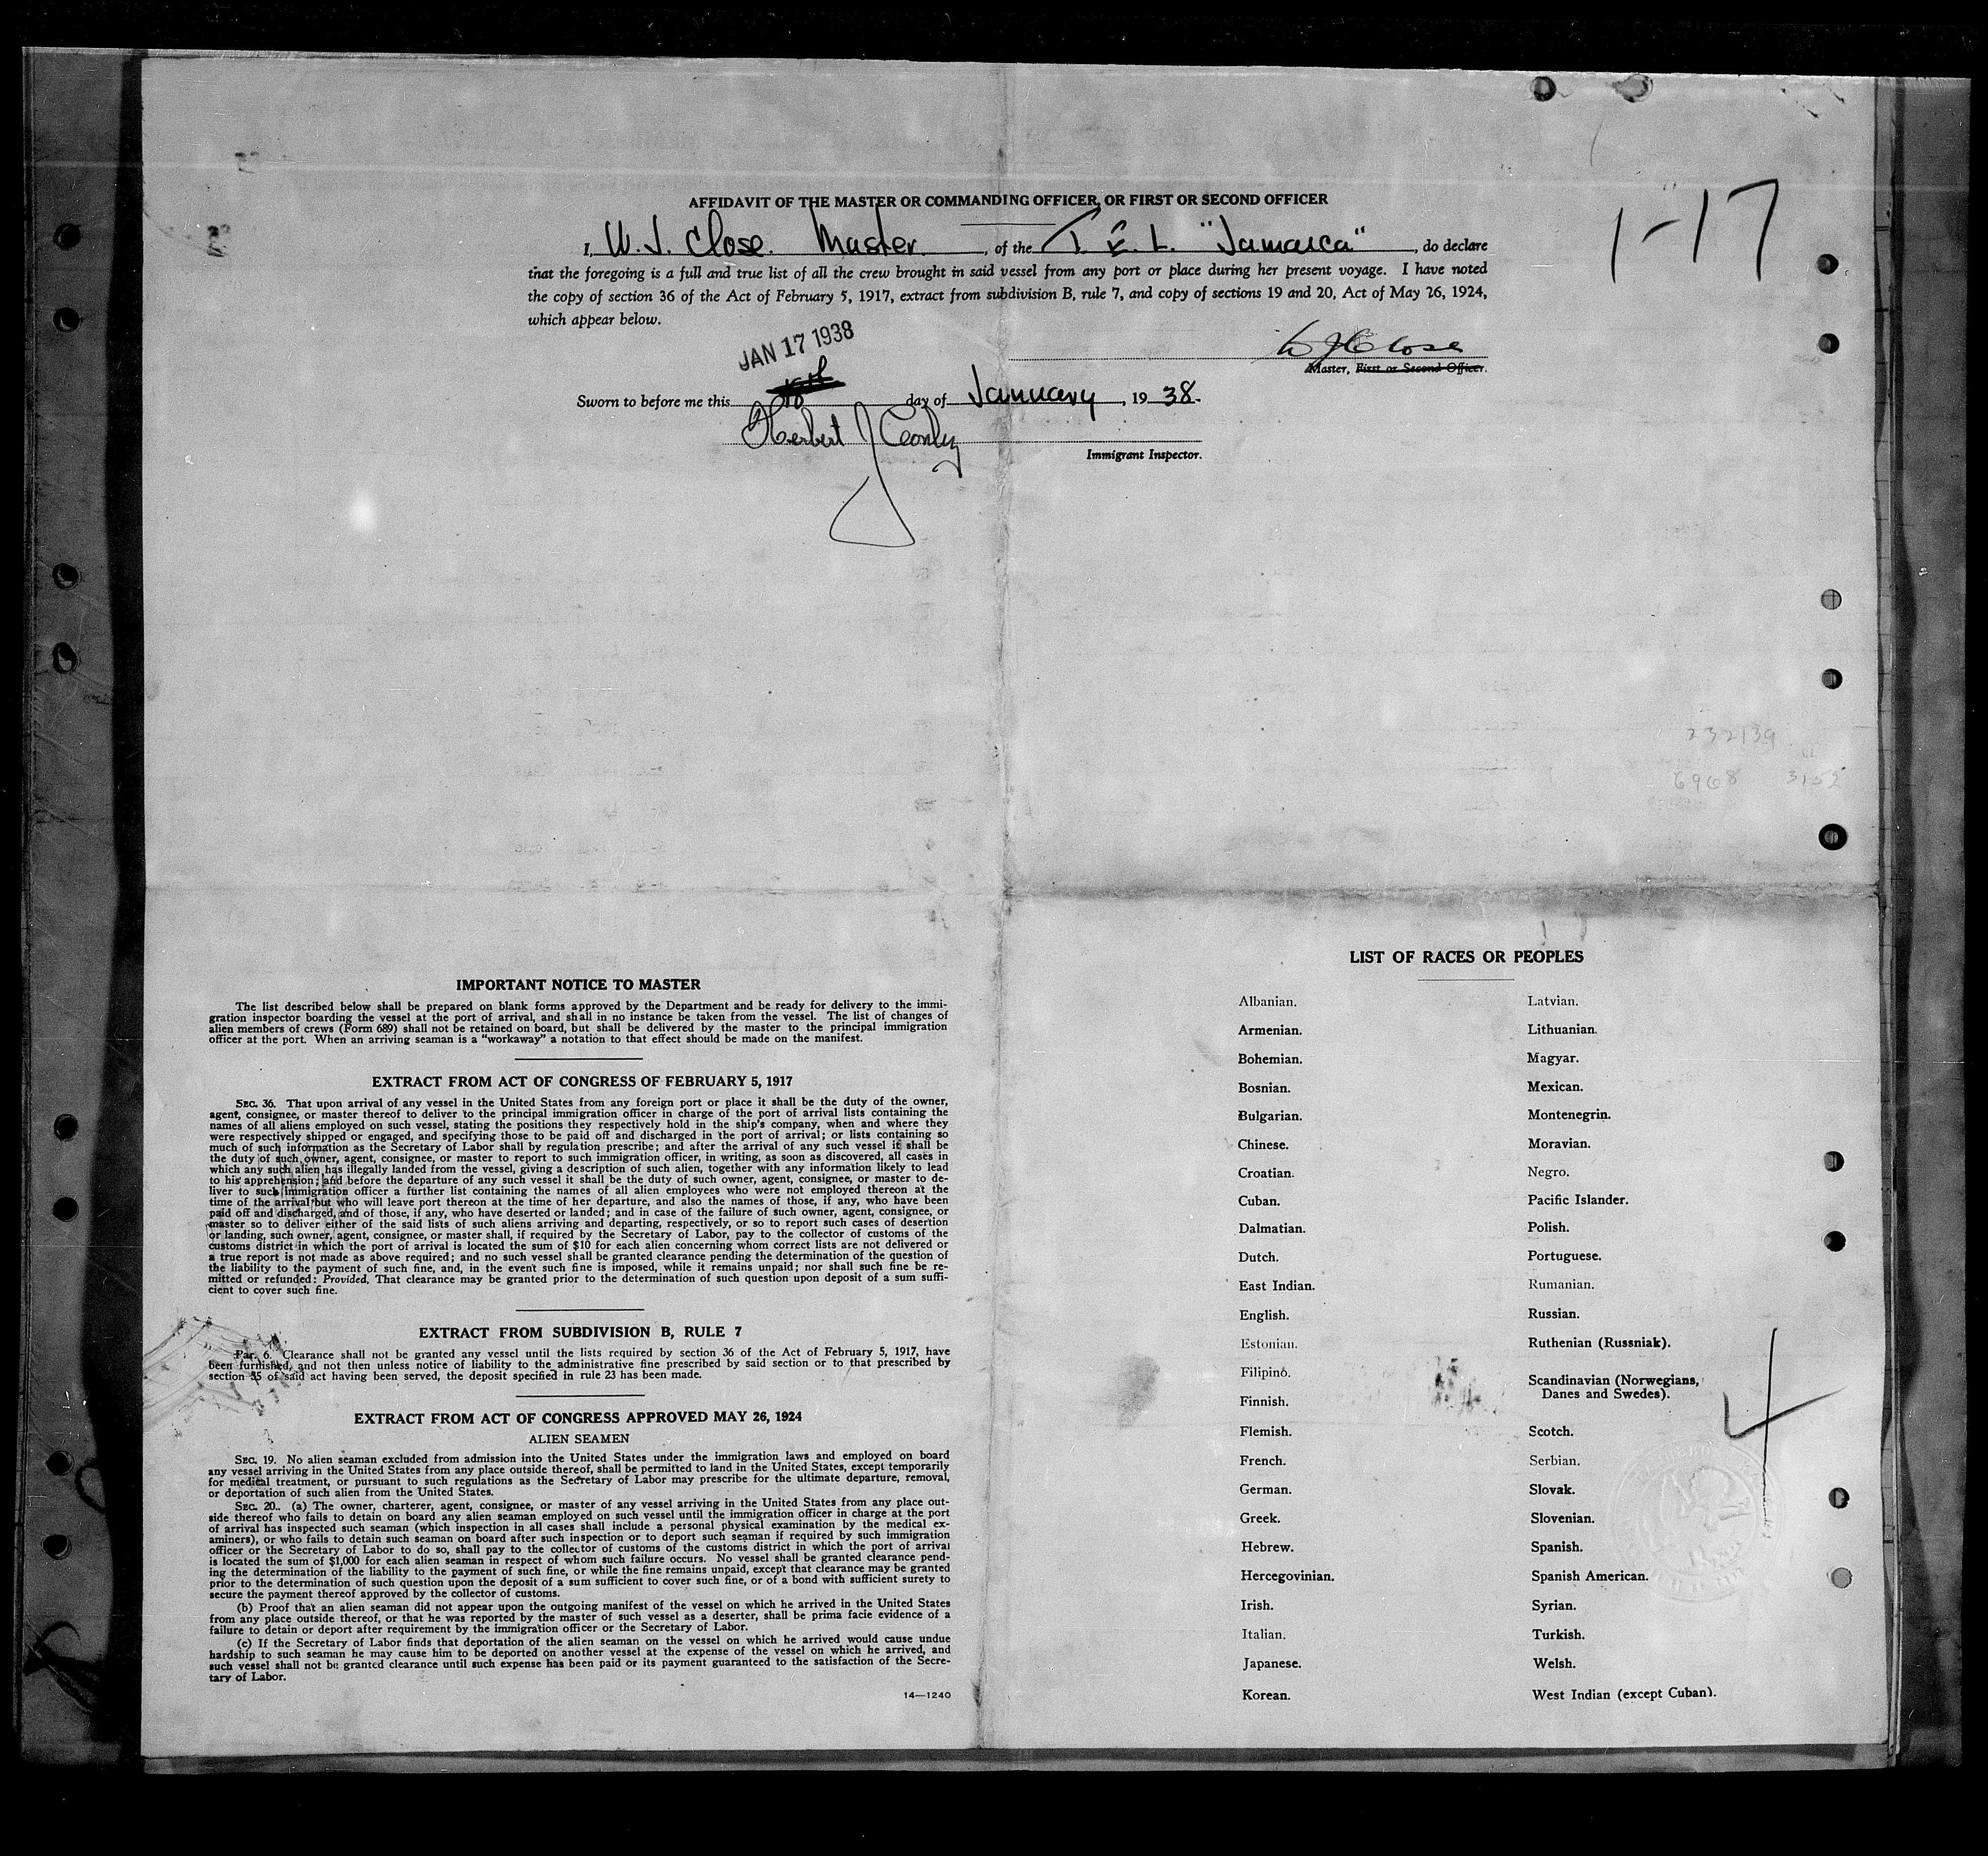 AFFIDAVIT OF THE MASTER OR COMMANDING OFFICER, OR FIRST OR SECOND OFFICER
1-17
I, W. J. Close. Master , of the T. E. L. "Jamaica" , do declare
that the foregoing is a full and true list of all the crew brought in said vessel from any port or place during her present voyage. I have noted
the copy of section 36 of the Act of February 5, 1917, extract from subdivision B, rule 7, and copy of sections 19 and 20, Act of May 26, 1924,
which appear below.
JAN 17 1938
W J Close
Master, First or Second Officer.
Sworn to before me this day of January , 19 38.
Herbert J
Immigrant Inspector.
232139
6968 3152
IMPORTANT NOTICE TO MASTER
The list described below shall be prepared on blank forms approved by the Department and be ready for delivery to the immi-
gration inspector boarding the vessel at the port of arrival, and shall in no instance be taken from the vessel. The list of changes of
alien members of crews (Form 689) shall not be retained on board, but shall be delivered by the master to the principal immigration
officer at the port. When an arriving seaman is a "workaway" a notation to that effect should be made on the manifest.
EXTRACT FROM ACT OF CONGRESS OF FEBRUARY 5, 1917
SEC. 36. That upon arrival of any vessel in the United States from any foreign port or place it shall be the duty of the owner,
agent, consignee, or master thereof to deliver to the principal immigration officer in charge of the port of arrival lists containing the
names of all aliens employed on such vessel, stating the positions they respectively hold in the ship's company, when and where they
were respectively shipped or engaged, and specifying those to be paid off and discharged in the port of arrival; or lists containing so
much of such information as the Secretary of Labor shall by regulation prescribe; and after the arrival of any such vessel it shall be
the duty of such owner, agent, consignee, or master to report to such immigration officer, in writing, as soon as discovered, all cases in
which any such alien has illegally landed from the vessel, giving a description of such alien, together with any information likely to lead
to his apprehension; and before the departure of any such vessel it shall be the duty of such owner, agent, consignee, or master to de-
liver to such immigration officer a further list containing the names of all alien employees who were not employed thereon at the
time of the arrival but who will leave port thereon at the time of her departure, and also the names of those, if any, who have been
paid off and discharged, and of those, if any, who have deserted or landed; and in case of the failure of such owner, agent, consignee, or
master so to deliver either of the said lists of such aliens arriving and departing, respectively, or so to report such cases of desertion
or landing, such owner, agent, consignee, or master shall, if required by the Secretary of Labor, pay to the collector of customs of the
customs district in which the port of arrival is located the sum of $10 for each alien concerning whom correct lists are not delivered or
a true report is not made as above required; and no such vessel shall be granted clearance pending the determination of the question of
the liability to the payment of such fine, and, in the event such fine is imposed, while it remains unpaid; nor shall such fine be re-
mitted or refunded: Provided, That clearance may be granted prior to the determination of such question upon deposit of a sum suffi-
cient to cover such fine.
EXTRACT FROM SUBDIVISION B, RULE 7
Par. 6. Clearance shall not be granted any vessel until the lists required by section 36 of the Act of February 5, 1917, have
been furnished, and not then unless notice of liability to the administrative fine prescribed by said section or to that prescribed by
section 35 of said act having been served, the deposit specified in rule 23 has been made.
EXTRACT FROM ACT OF CONGRESS APPROVED MAY 26, 1924
ALIEN SEAMEN
SEC. 19. No alien seaman excluded from admission into the United States under the immigration laws and employed on board
any vessel arriving in the United States from any place outside thereof, shall be permitted to land in the United States, except temporarily
for medical treatment, or pursuant to such regulations as the Secretary of Labor may prescribe for the ultimate departure, removal,
or deportation of such alien from the United States.
SEC. 20. (a) The owner, charterer, agent, consignee, or master of any vessel arriving in the United States from any place out-
side thereof who fails to detain on board any alien seaman employed on such vessel until the immigration officer in charge at the port
of arrival has inspected such seaman (which inspection in all cases shall include a personal physical examination by the medical ex-
aminers), or who fails to detain such seaman on board after such inspection or to deport such seaman if required by such immigration
officer or the Secretary of Labor to do so, shall pay to the collector of customs of the customs district in which the port of arrival
is located the sum of $1,000 for each alien seaman in respect of whom such failure occurs. No vessel shall be granted clearance pend-
ing the determination of the liability to the payment of such fine, or while the fine remains unpaid, except that clearance may be granted
prior to the determination of such question upon the deposit of a sum sufficient to cover such fine, or of a bond with sufficient surety to
secure the payment thereof approved by the collector of customs.
(b) Proof that an alien seaman did not appear upon the outgoing manifest of the vessel on which he arrived in the United States
from any place outside thereof, or that he was reported by the master of such vessel as a deserter, shall be prima facie evidence of a
failure to detain or deport after requirement by the immigration officer or the Secretary of Labor.
(c) If the Secretary of Labor finds that deportation of the alien seaman on the vessel on which he arrived would cause undue
hardship to such seaman he may cause him to be deported on another vessel at the expense of the vessel on which he arrived, and
such vessel shall not be granted clearance until such expense has been paid or its payment guaranteed to the satisfaction of the Secre-
tary of Labor.
14—1240
LIST OF RACES OR PEOPLES
Albanian.
Armenian.
Bohemian.
Bosnian.
Bulgarian.
Chinese.
Croatian.
Cuban.
Dalmatian.
Dutch.
East Indian.
English.
Estonian.
Filipino.
Finnish.
Flemish.
French.
German.
Greek.
Hebrew.
Hercegovinian.
Irish.
Italian.
Japanese.
Korean.
Latvian.
Lithuanian.
Magyar.
Mexican.
Montenegrin.
Moravian.
Negro.
Pacific Islander.
Polish.
Portuguese.
Rumanian.
Russian.
Ruthenian (Russniak).
Scandinavian (Norwegians,
Danes and Swedes).
Scotch.
Serbian.
Slovak.
Slovenian.
Spanish.
Spanish American.
Syrian.
Turkish.
Welsh.
West Indian (except Cuban).